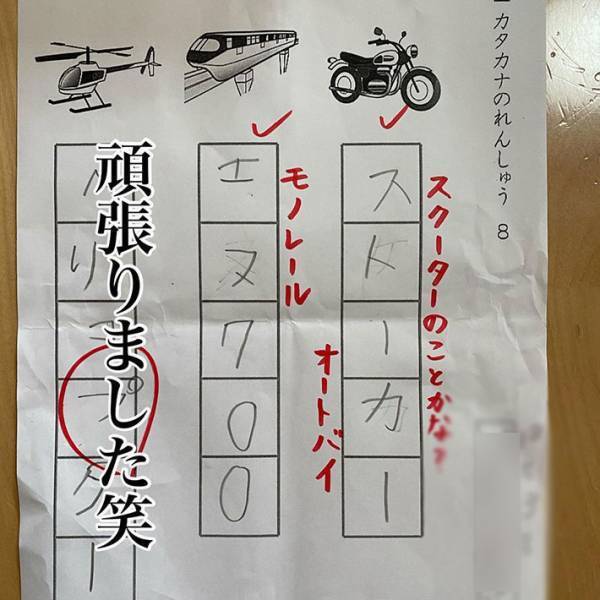 カタカナのれんしゅう 8
スクーターのことかな?
ストーカー
オートバイ
モノレール
エヌ700
頑張りました笑
ヘリコプター